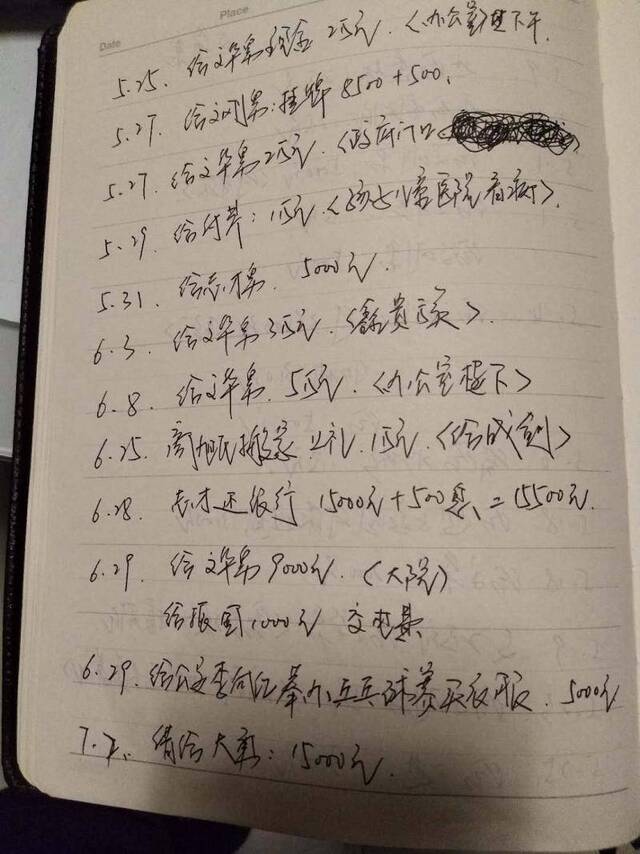 Date Place
5.25. 给文华弟现金 2万元.〈办公室〉楼下午.
5.27. 给文刚弟:挂牌 8500+500.
5.27. 给文华弟2万元.〈政府门口
5.29. 给付芹:1万元.〈孩儿童医院看病〉.
5.31. 给志才弟. 5000元.
6.3. 给文华弟3万元.〈贵〉.
6.8. 给文华弟. 5万元.〈办公室楼下〉
6.25. 周旭民搬家上礼.1万元.〈给成剑〉
6.28. 志才还银行 15000元+500息、=15500元.
6.29. 给文华弟9000元.〈大院〉
给振国1000元 交电费
6.29.给公安李向红举办乒乓球赛买衣服. 5000元
7.2. 借给大勇:15000元.